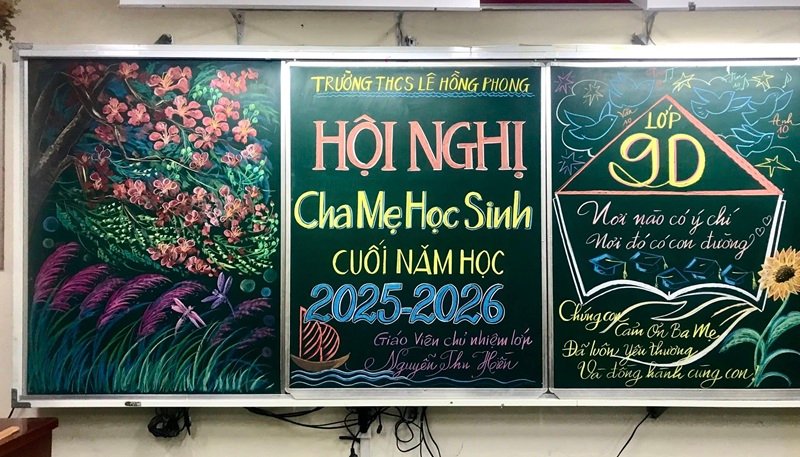 TRƯỜNG THCS LÊ HỒNG PHONG
HỘI NGHỊ
Cha Mẹ Học Sinh
CUỐI NĂM HỌC
2025-2026
Giáo Viên chủ nhiệm lớp
Nguyễn Thu Hiền
Văn
10
Anh
10
LỚP
9D
Nơi nào có ý chí
Nơi đó có con đường
Chúng con
Cảm Ơn Ba Mẹ
Đã luôn Yêu thương
Và đồng hành cùng con!